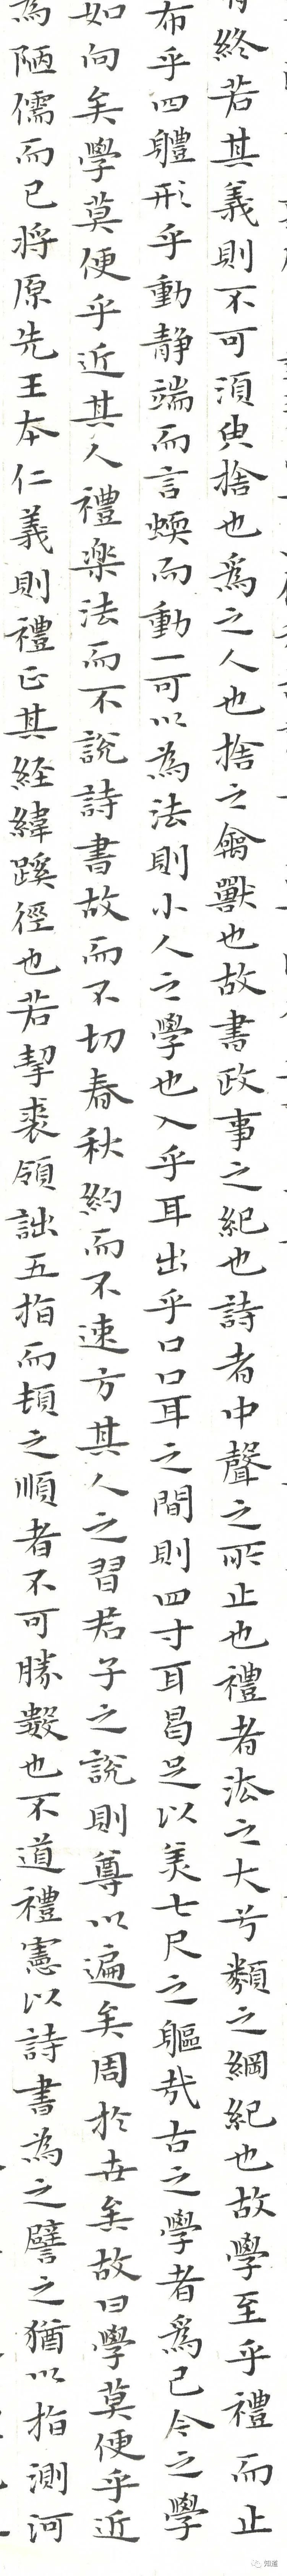 終若其義則不可須臾捨也爲之人也捨之禽獸也故書政事之紀也詩者中聲之所止也禮者法之大兮類之綱紀也故學至乎禮而止
布乎四體形乎動靜端而言蝡而動一可以為法則小人之學也入乎耳出乎口口耳之間則四寸耳曷足以美七尺之軀哉古之學者爲己今之學
如向矣學莫便乎近其人禮樂法而不說詩書故而不切春秋約而不速方其人之習君子之說則尊以遍矣周於世矣故曰學莫便乎近
為陋儒而已將原先王本仁義則禮正其經緯蹊徑也若挈裘領詘五指而頓之順者不可勝數也不道禮憲以詩書為之譬之猶以指測河
知道